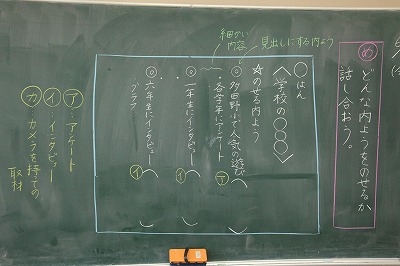 め
どんな内ようをのせるか
話し合おう。
見出しにする内よう
細かい
内容
○はん
〈学校の○○○〉
☆のせる内よう
◎多田野小で人気の遊び
・各学年にアンケート
ア
◎一年生にインタビュー
イ
◎六年生にインタビュー
イ
グラフ
ア…アンケート
イ…インタビュー
カ…カメラを持っての
取材